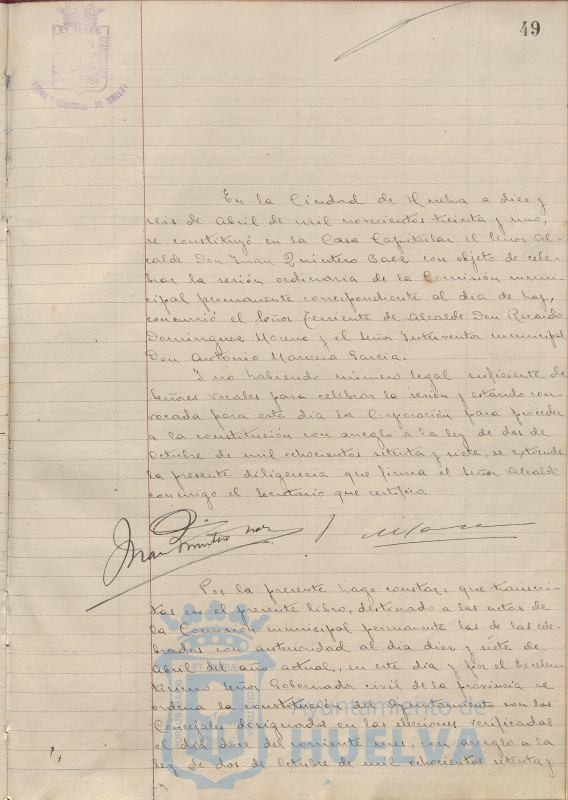 49
ET TERRÆ
En la Ciudad de Huelva a diez y
seis de Abril de mil novecientos treinta y uno,
se constituyó en la Casa Capitular el Señor Al-
calde Don Juan Quintero Baez con objeto de cele-
brar la sesión ordinaria de la Comisión muni-
cipal permanente correspondiente al día de hoy,
concurrió el Señor Teniente de Alcalde Don Ricardo
Domínguez Moreno y el Señor Interventor municipal
Don Antonio Mancera Garcia.
Y no habiendo número legal suficiente de
Señores vocales para celebrar la sesión y estando con-
vocada para este día la Corporación para proceder
a la constitución con arreglo a la ley de dos de
Octubre de mil ochocientos setenta y siete, se extiende
la presente diligencia que firma el Señor Alcalde
conmigo el Secretario que certifico.
Juan Quintero Baez
Por la presente hago constar, que transcri-
tas en el presente libro, destinado a las actas de
la Comisión municipal permanente las de las cele-
bradas con anterioridad al día diez y siete de
Abril del año actual, en este día y por el Excelen-
tísimo Señor Gobernador civil de la provincia se
ordena la constitución del Ayuntamiento con los
Concejales designados en las elecciones verificadas
el día doce del corriente mes, con arreglo a la
ley de dos de Octubre de mil ochocientos setenta y
Ayuntamiento de
HUELVA